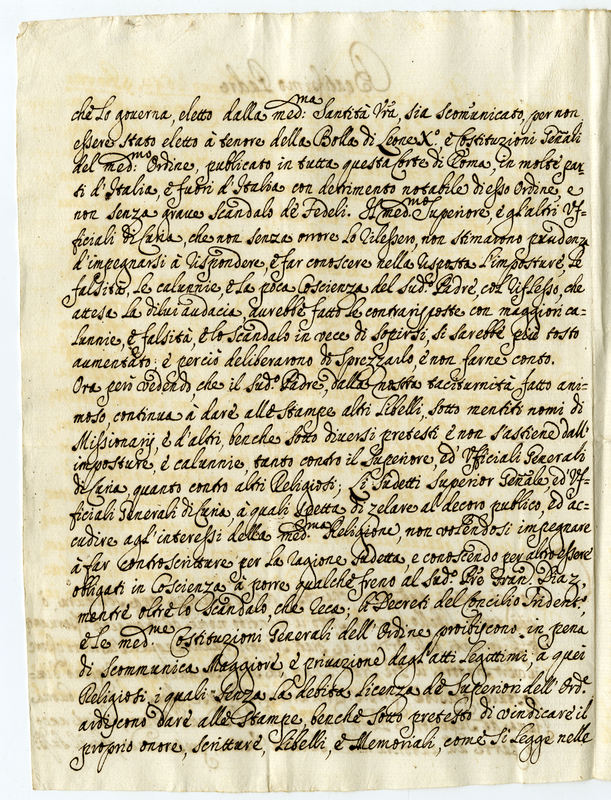 che Lo governa, eletto dalla med:ma Santità Vrã, sia scomunicato, per non
essere stato eletto à tenore della Bolla di Leone X.º e Costituzioni Gẽnali
del med:mo Ordine, publicato in tutta questa Corte di Roma, in molte par-
ti d'Italia, e fuori d'Italia con detrimento notabile di esso Ordine, e
non senza grave scandalo de Fedeli. Il med:mo Superiore, e gl'altri Uf-
ficiali di Curia, che non senza orrore Lo vilessero, non stimarono prudenza
d'impegnarsi à rispondere e far conoscere nella risposta l'imposture, le
falsità, Le calunnie, e La poca Coscienza del sud.º Padre, col riflesso, che
attesa la dilui audacia, aurebbe fatto le contrarisposte con maggiori ca-
lunnie, e falsità, e lo scandalo in vece di sopirsi, si sarebbe più tosto
aumentato; e perciò deliberarono di sprezzarlo, e non farne conto.
Ora però vedendo, che il sud.º Padre, dalla nostra taciturnità, fatto ani-
moso, continua à dare alle stampe altri Libelli, sotto mentiti nomi di
Missionarij, e d'altri, benche sotto diversi pretesti e non s'astiene dall'
imposture, e calunnie, tanto contro il Superiore ed' Ufficiali Generali
di Curia, quanto contro altri Religiosi; Li sudetti Superior Gẽnale, ed' Uf-
ficiali Generali di Curia, a quali spetta di zelare al decoro publico, ed ac-
cudire agl'interessi della med:ma Religione, non volendosi impegnare
à far controscritture per la ragione sudetta, e conoscendo per altro essere
obligati in Coscienza à porre qualche freno al sud.º Pre Fran. Diaz,
mentre oltre lo scandalo, che reca; li Decreti del Concilio Trident.º
e Le med:me Costituzioni Generali dell'Ordine proibiscono in pena
di scommunica Maggiore e privazione dagl'atti Legittimi, a quei
Religiosi, i quali senza la debita licenza de Superiori dell'Ord.e
ardiscono dare alle stampe, benche sotto pretesto di vindicare il
proprio onore, scritture, Libelli, e Memoriali, come si legge nelle